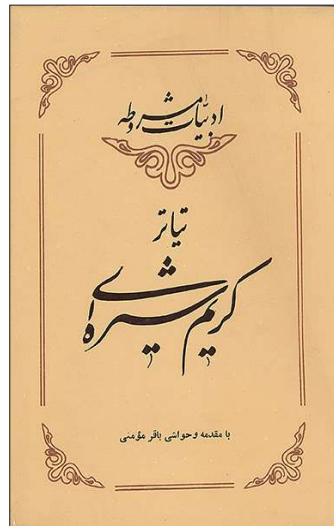 ادبیات مشروطه
تیاتر
کریم شیره‌ای
با مقدمه و حواشی باقر مؤمنی